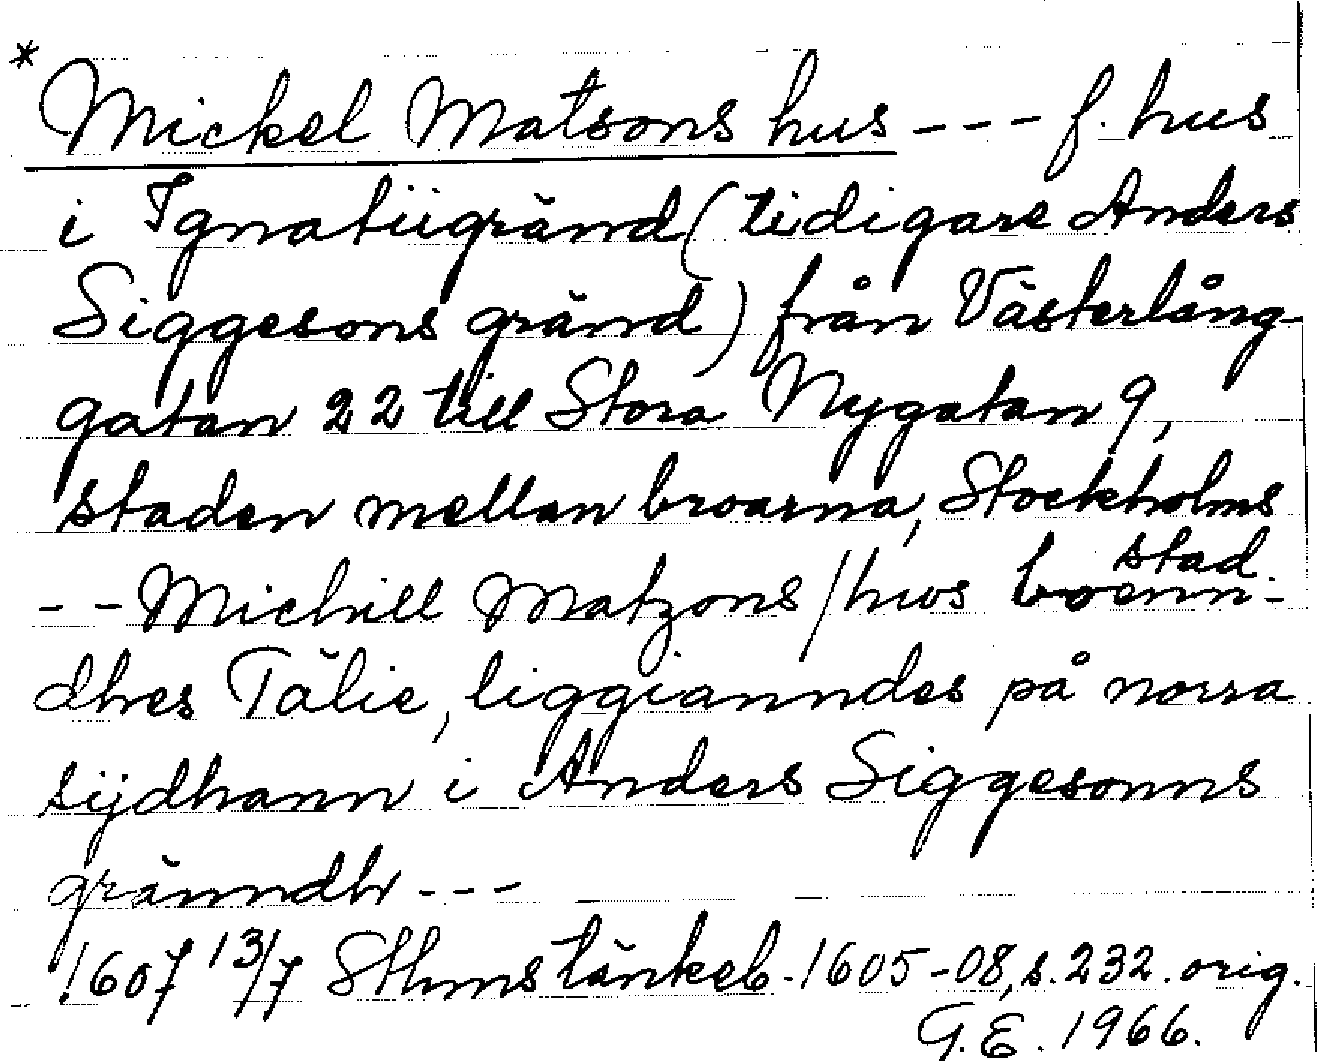 * Mickel Matsons hus --- f. hus
i Ignatiigränd (tidigare Anders
Siggesons gränd) från Västerlång-
gatan 22 till Stora Nygatan 9,
staden mellan broarna, Stockholms
stad.
-- Michill Matzons / hws boenn-
dhes Tälie, liggianndes på norra
sijdhann i Anders Siggesonns
gränndh ---
1607 13/7 Sthms tänkeb. 1605-08, s. 232. orig.
G.E. 1966.